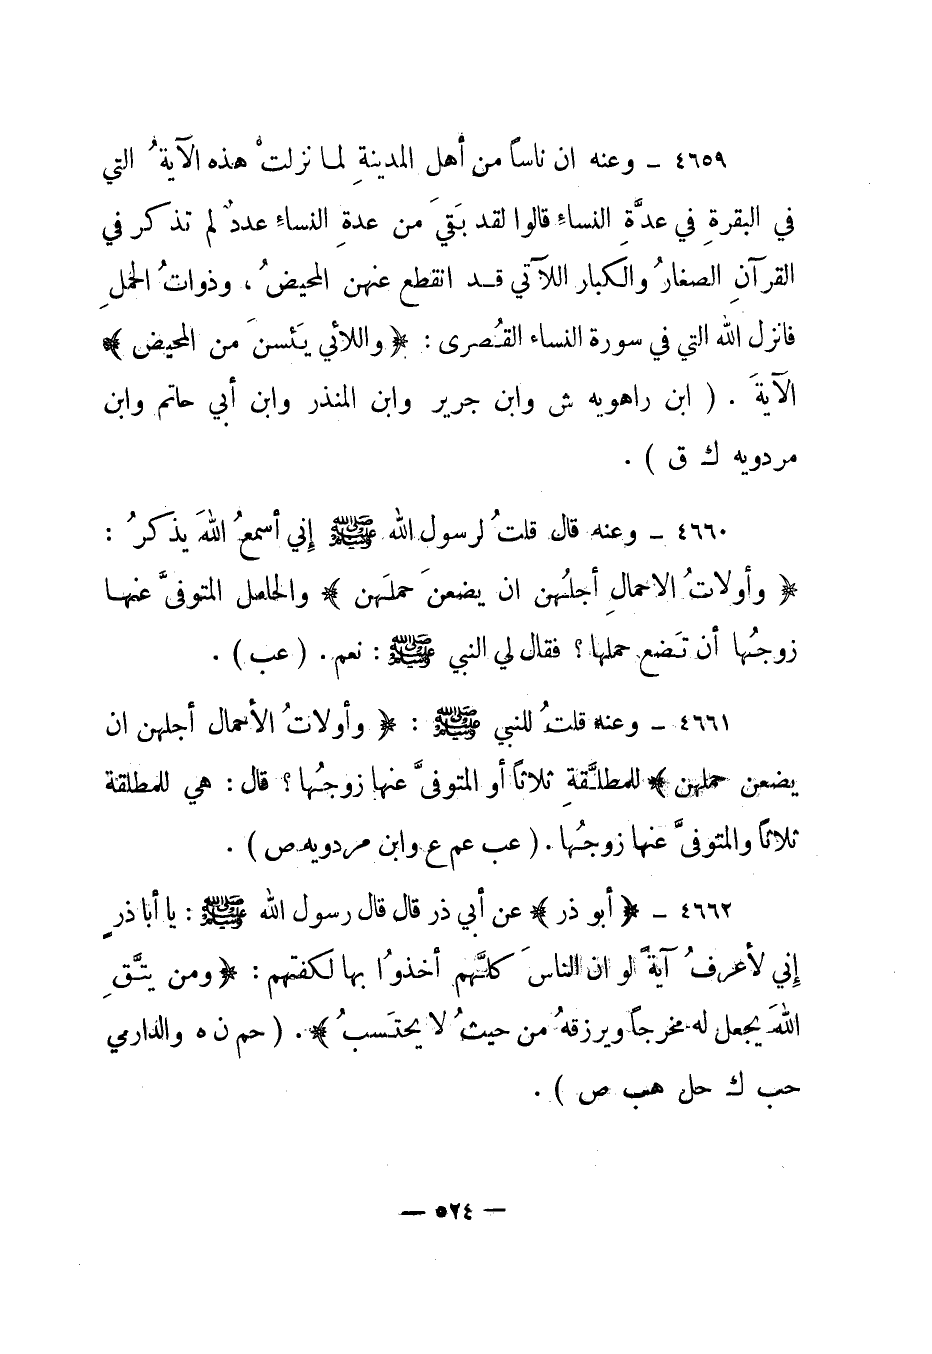 ٤٦٥٩ – وعنه ان ناساً من أهل المدينةِ لما نزلتْ هذه الآيةُ التي
في البقرةِ في عدَّةِ النساءِ قالوا لقد بَقيَ من عدةِ النساءِ عددٌ لم تذكر في
القرآنِ الصغارُ والكبار اللآتي قد انقطع عنهن المحيضُ، وذواتُ الحملِ
فانزل الله التي في سورة النساء القُصرى : ﴿ واللائي يَئسنَ من المحيض ﴾
الآيةَ . ( ابن راهويه ش وابن جرير وابن المنذر وابن أبي حاتم وابن
مردويه ك ق ) .
٤٦٦٠ – وعنه قال قلتُ لرسول الله ﷺ إني أسمعُ اللهَ يذكرُ :
﴿ وأولاتُ الاحمالِ أجلُهن ان يضعنَ حملَهن ﴾ والحامل المتوفىَّ عنها
زوجُها أن تَضع حملها ؟ فقال لي النبي ﷺ : نعم . ( عب ) .
٤٦٦١ – وعنه قلتُ للنبي ﷺ : ﴿ وأولاتُ الأحمال أجلهن ان
يضعن حملهن ﴾ للمطلَّقةِ ثلاثاً أو المتوفىَّ عنها زوجُها ؟ قال : هي للمطلقة
ثلاثاً والمتوفىَّ عنها زوجُها . ( عب عم ع وابن مردويه ص ) .
٤٦٦٢ – ﴿ أبو ذر ﴾ عن أبي ذر قال قال رسول الله ﷺ : يا أبا ذرٍ
إني لأعرفُ آيةً لو ان الناسَ كلَّهم أخذوا بها لكفتهم : ﴿ ومن يتَّقِ
اللهَ يجعل له مخرجاً ويرزقهُ من حيثُ لا يحتَسبُ ﴾ . ( حم ن ه والدارمي
حب ك حل هب ص ) .
— ٥٢٤ —